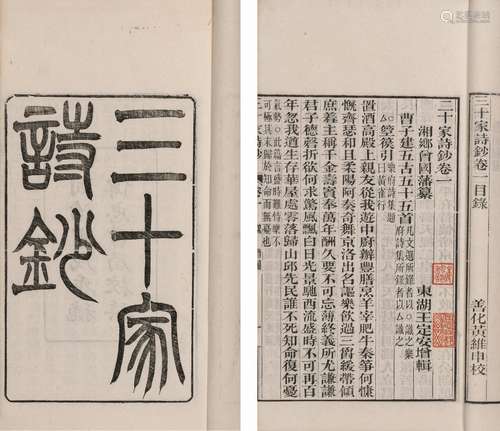 三十家
詩鈔
三十家詩鈔卷一目錄
善化黃維申校
三十家詩鈔卷一
湘鄉曾國藩纂
東湖王定安增輯
曹子建五古五十五首
箜篌引
置酒高殿上親友從我遊中廚辦豐膳烹羊宰肥牛秦箏何慷
慨齊瑟和且柔陽阿奏奇舞京洛出名謳樂飲過三爵緩帶傾
庶羞主稱千金壽賓奉萬年酬久要不可忘薄終義所尤謙謙
君子德磬折欲何求驚風飄白日光景馳西流盛時不可再百
年忽我遒生存華屋處零落歸山邱先民誰不死知命復何憂